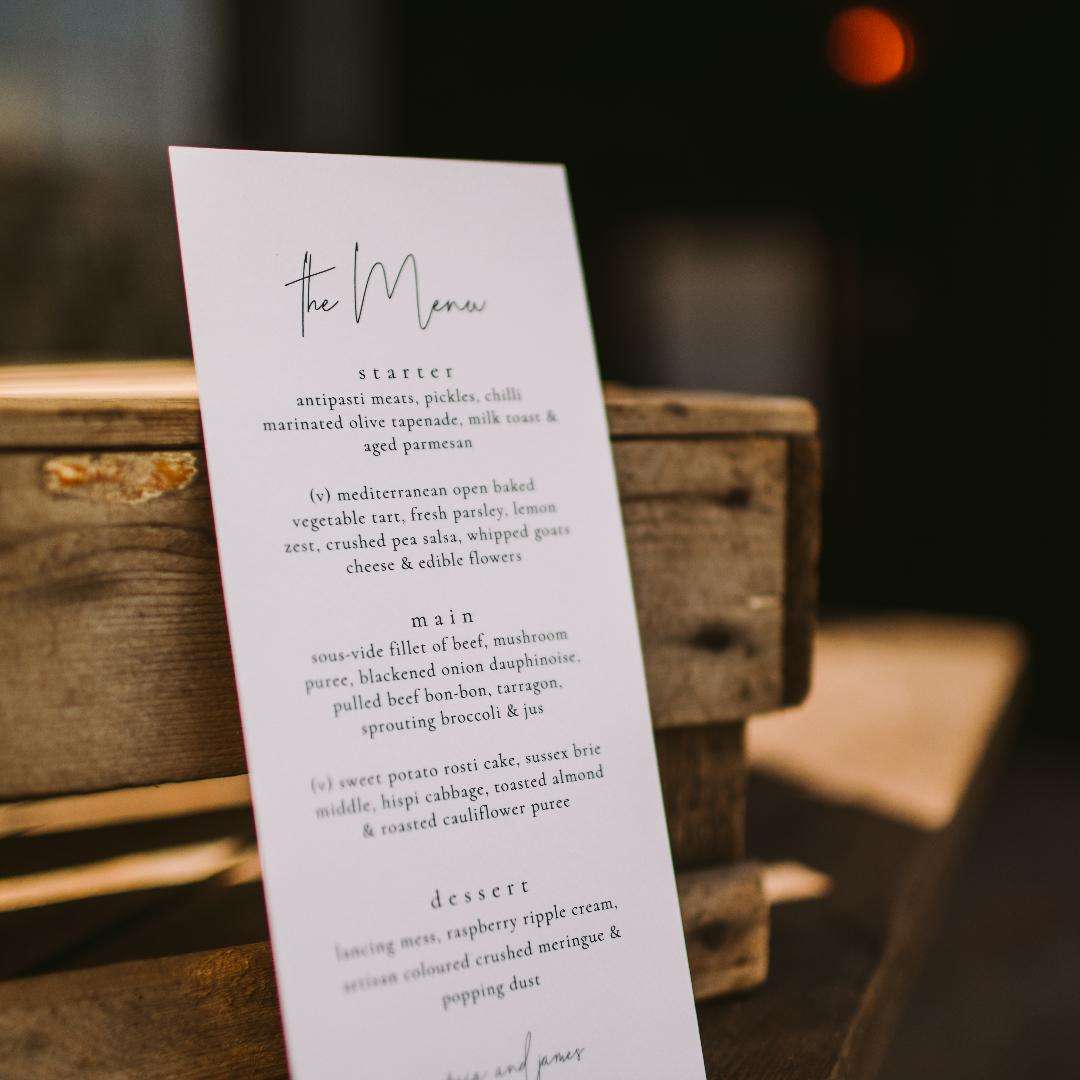 the Menu
starter
antipasti meats, pickles, chilli
marinated olive tapenade, milk toast &
aged parmesan
(v) mediterranean open baked
vegetable tart, fresh parsley, lemon
zest, crushed pea salsa, whipped goats
cheese & edible flowers
main
sous-vide fillet of beef, mushroom
puree, blackened onion dauphinoise,
pulled beef bon-bon, tarragon,
sprouting broccoli & jus
(v) sweet potato rosti cake, sussex brie
middle, hispi cabbage, toasted almond
& roasted cauliflower puree
dessert
lancing mess, raspberry ripple cream,
artisan coloured crushed meringue &
popping dust
and james